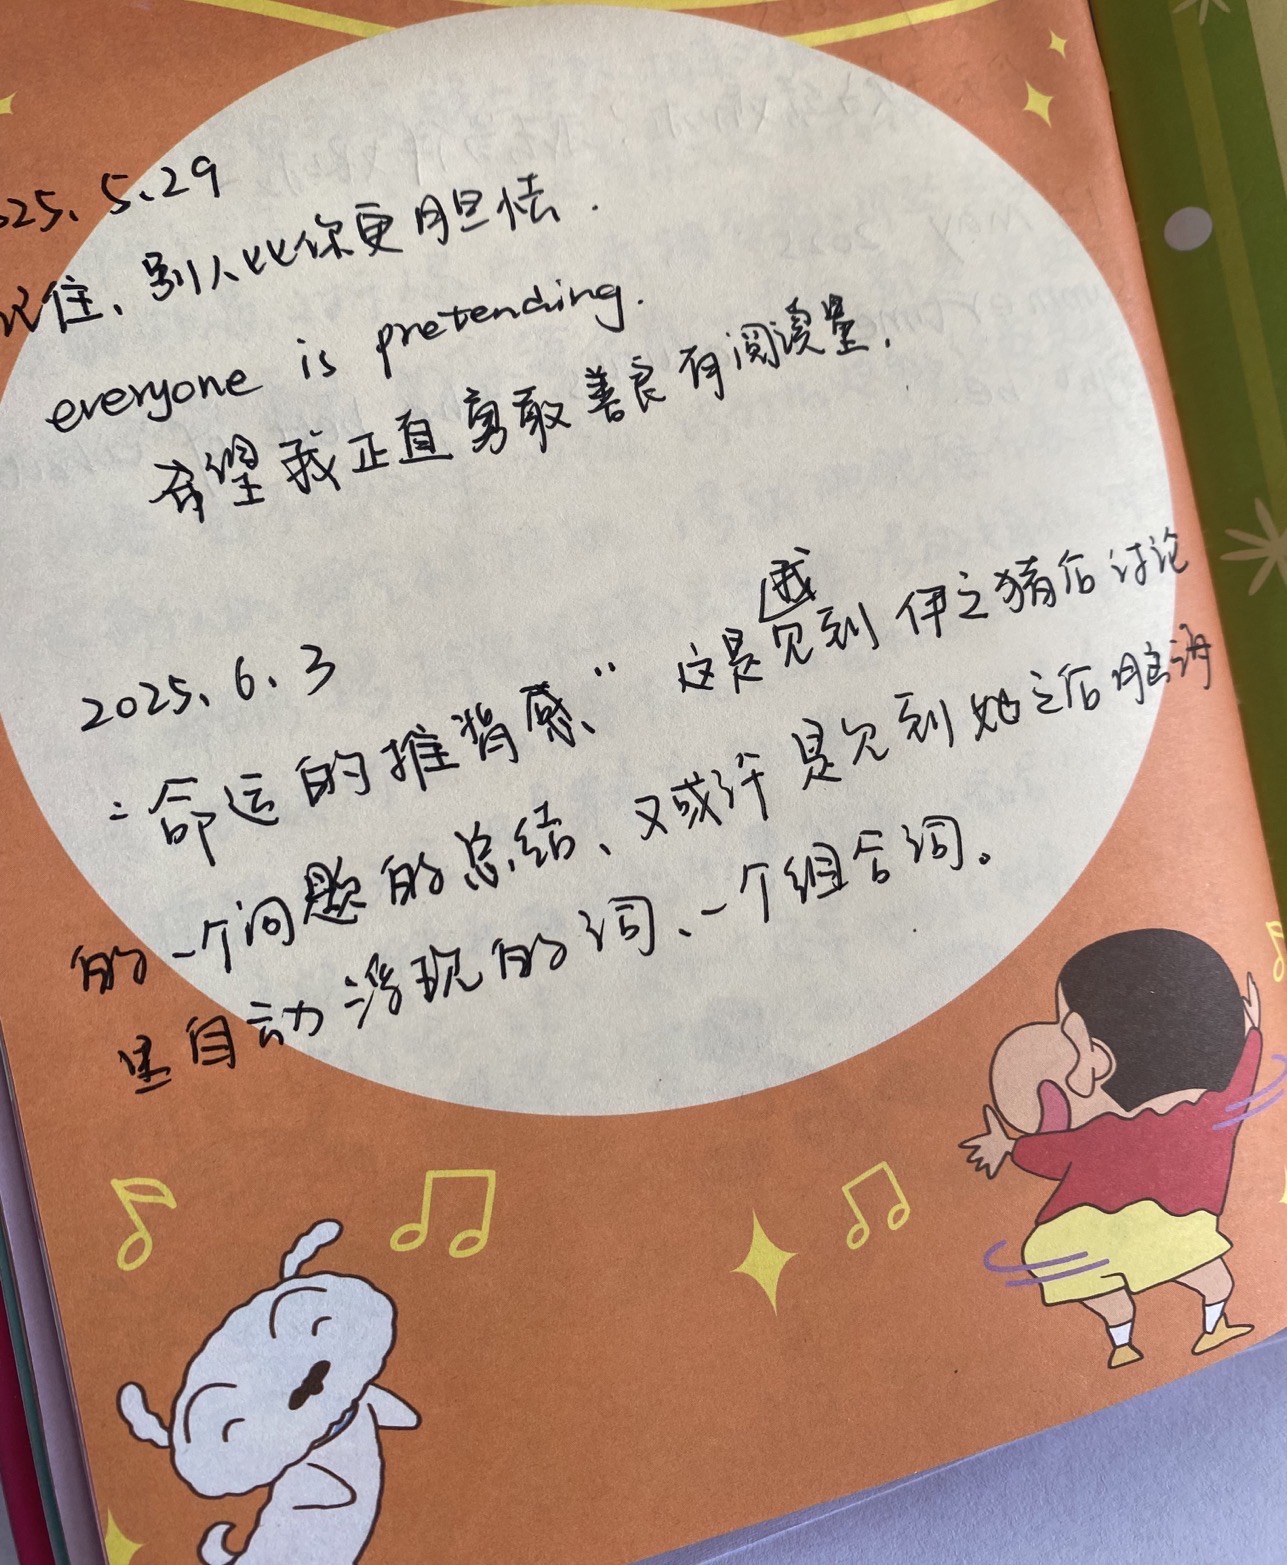 025、5、29
记住、别人比你更胆怯.
everyone is pretending.
希望我正直勇敢善良有阅读量.
2025、6、3
“命运的推背感、” 这是我见到伊之猪后讨论
的一个问题的总结、又或许是见到她之后脑海
里自动浮现的词、一个组合词。